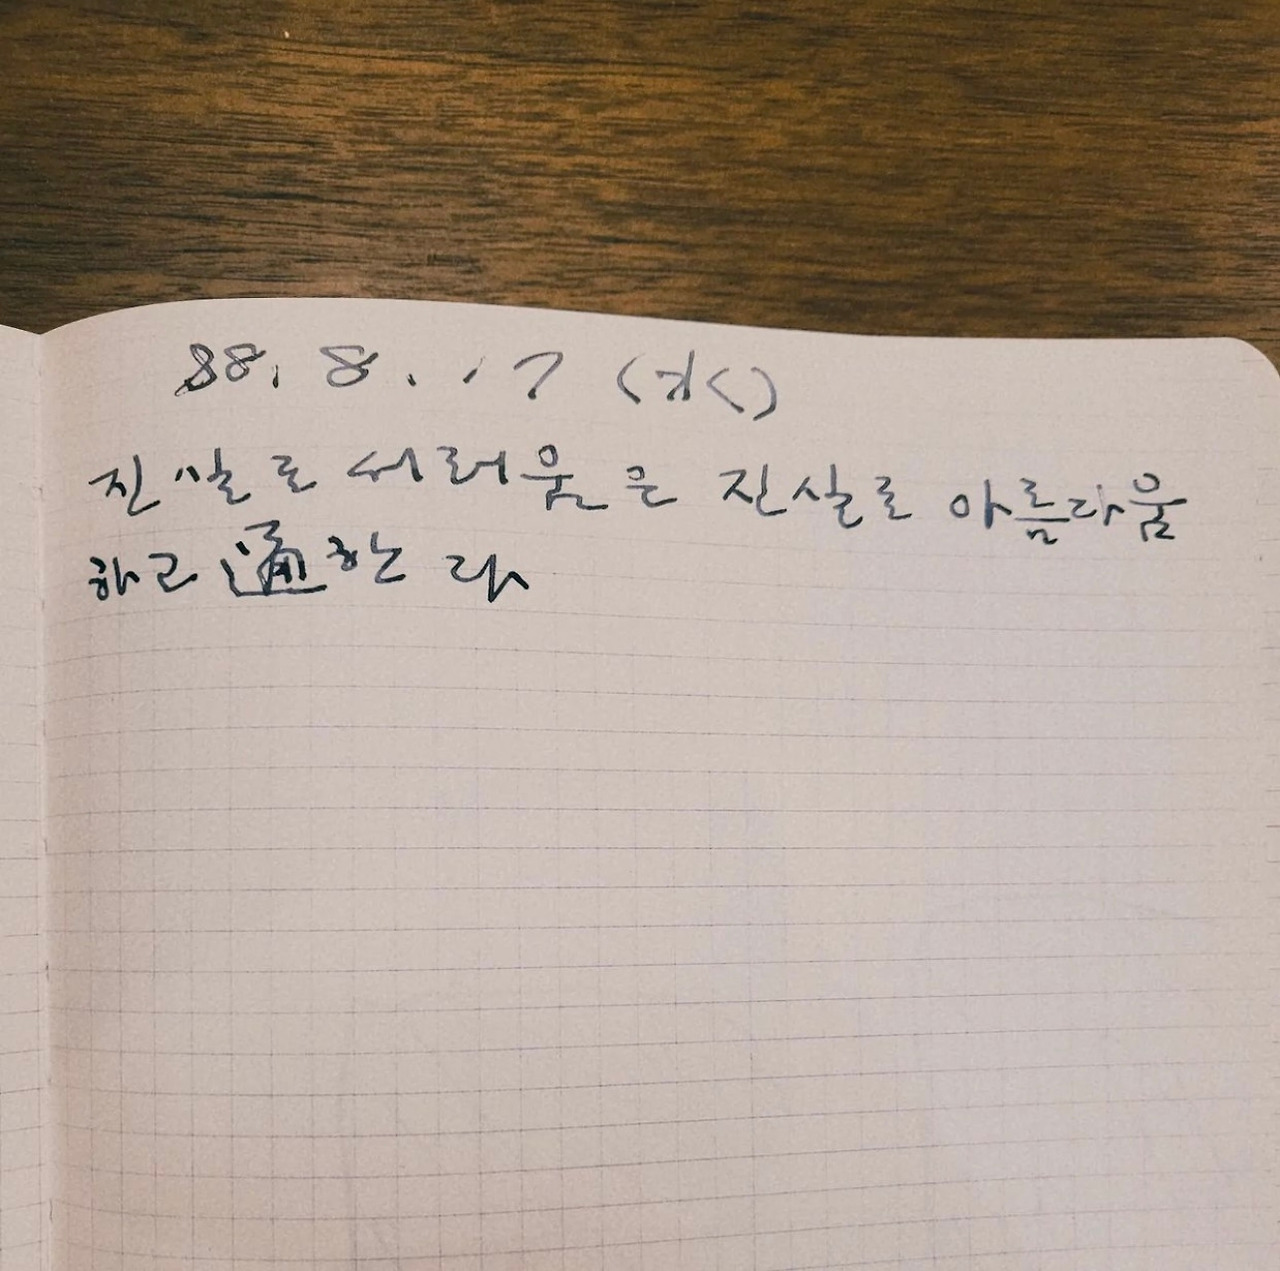 88. 8. 17 (水)
진실로 서러움은 진실로 아름다움
하고 通한다